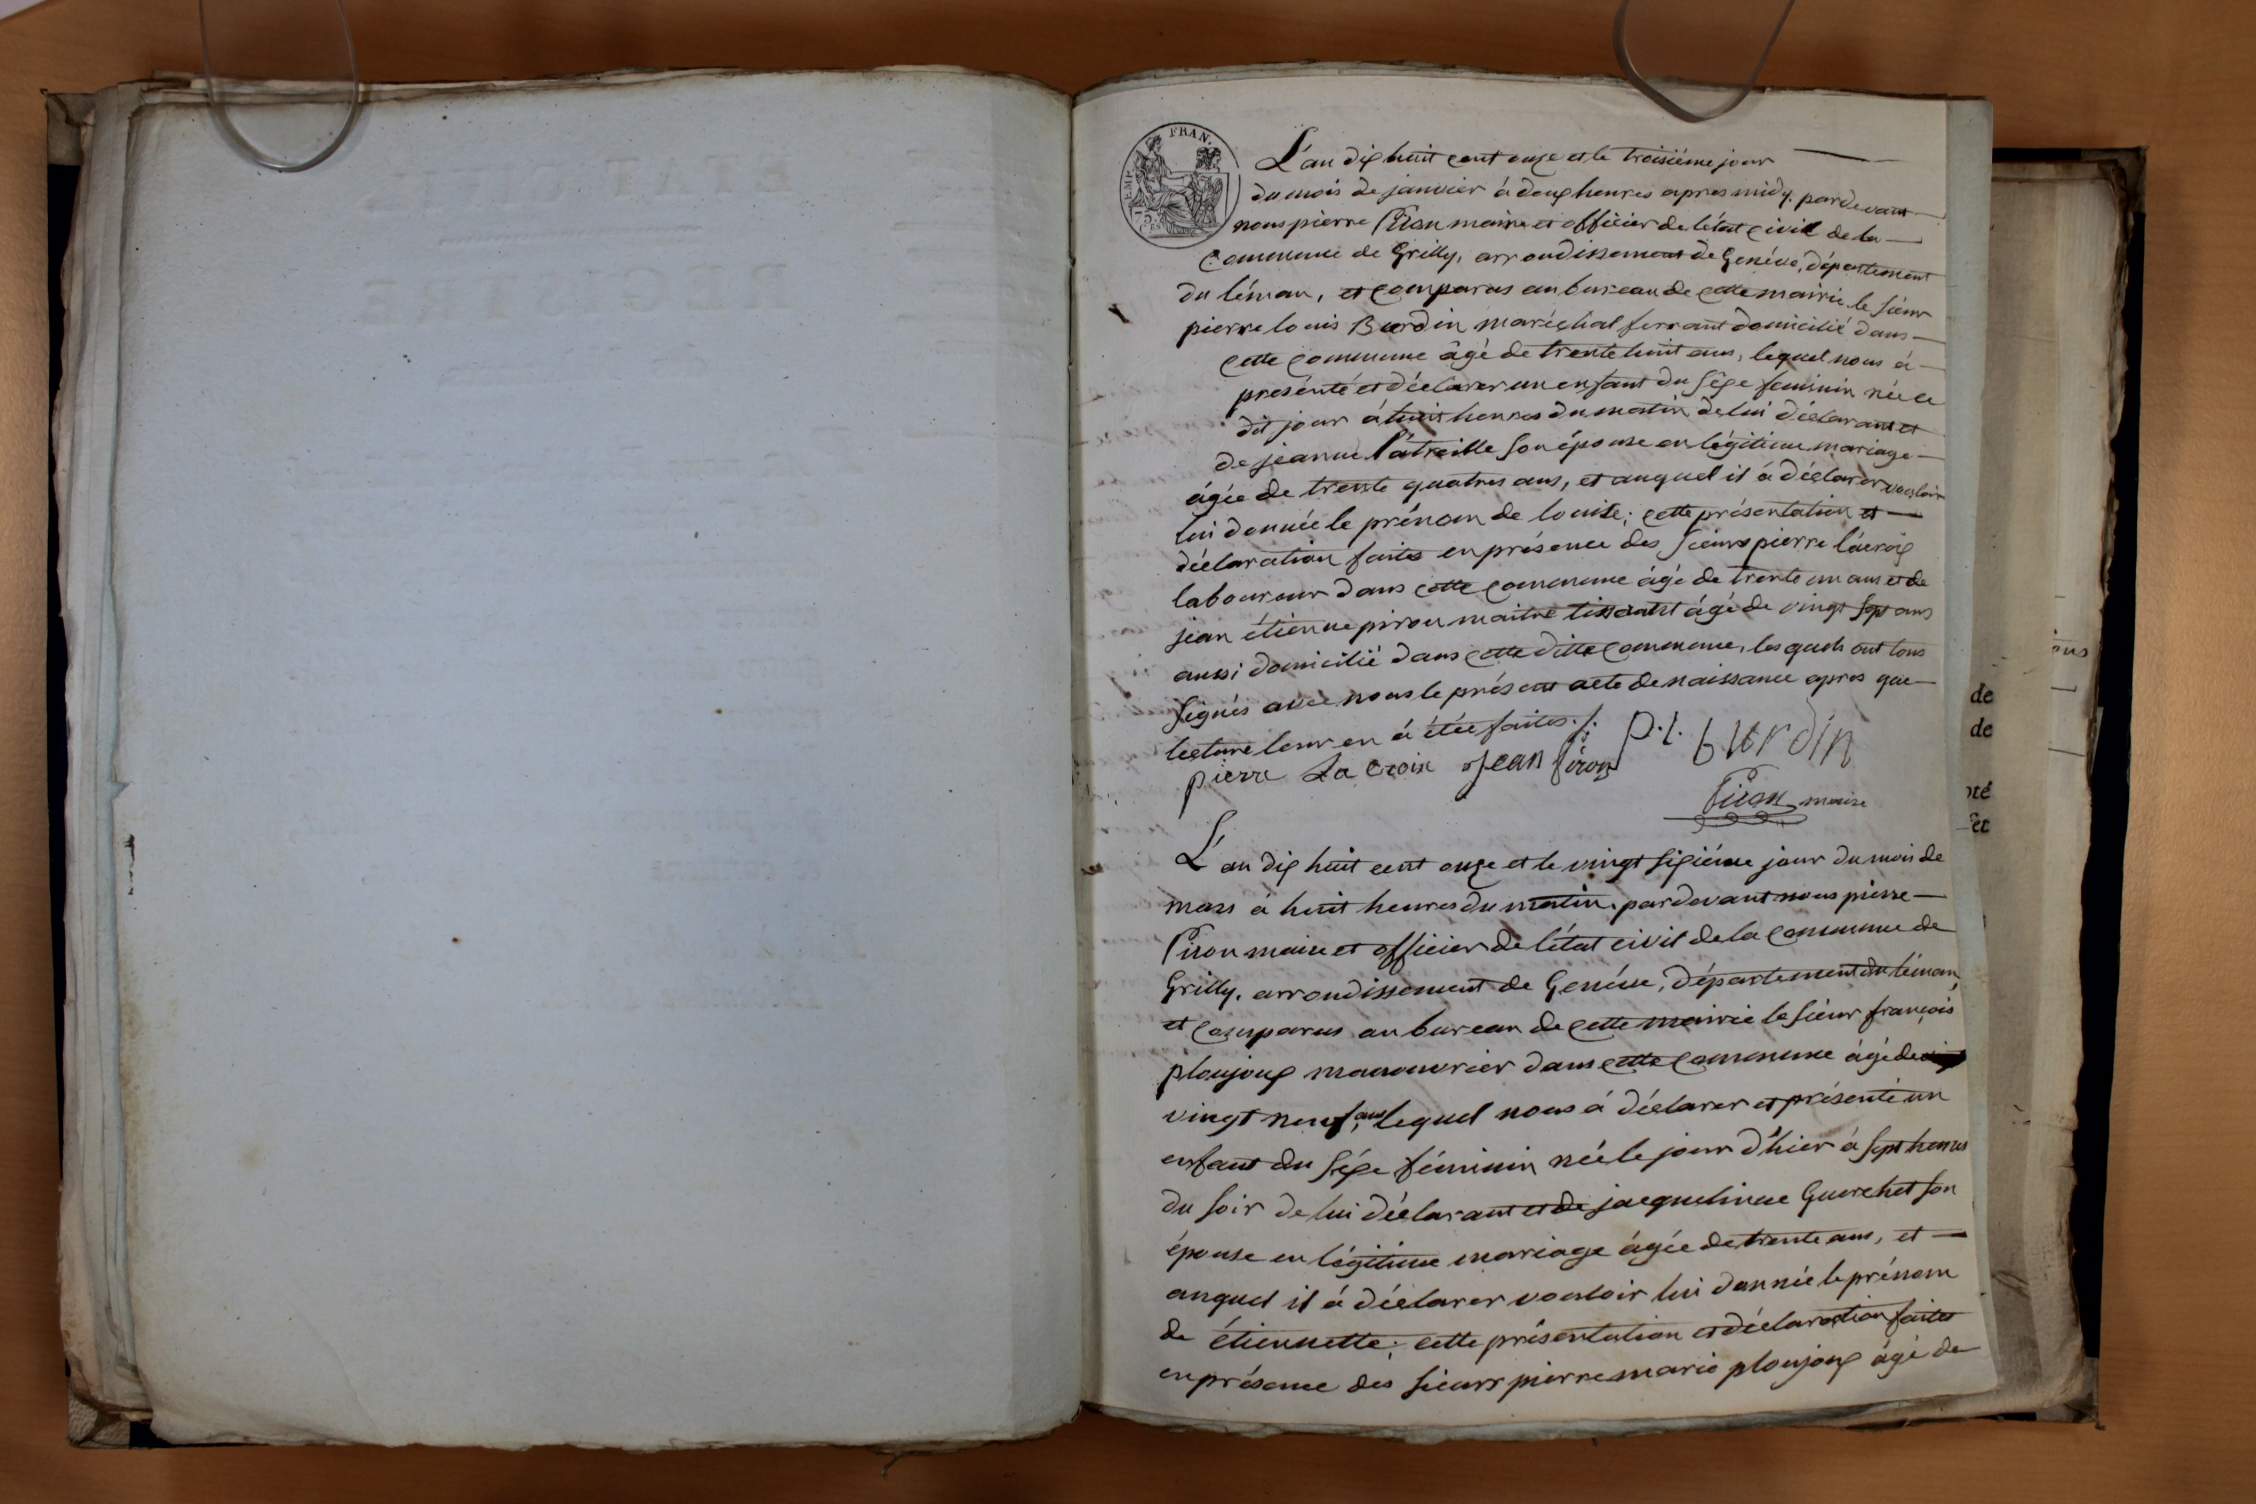 EMP. FRAN.
75
CES
L'an dix huit cent onze et le troisiéme jour
du mois de janvier à deux heures apres midy. pardevant
nous pierre Piron maire et officier de l'état civil de la
Commune de Grilly, arrondissement de Genéve, département
du léman, et comparus au bureau de cette mairie le sieur
pierre louis Burdin maréchal ferrant domicilié dans
cette commune âgé de trente huit ans, lequel nous à
présenté et déclarer un enfant du séxe feminin née ce
dit jour à huit heures du matin de lui déclarant et
de jeanne Latreille son épouse en légitime mariage
âgée de trente quatres ans, et auquel il à déclarer vouloir
lui donnée le prénom de louise; cette présentation et
déclaration faites en présence des sieurs pierre lacroix
laboureur dans cette commune âgé de trente un ans et de
jean étienne piron maitre tissant âgé de vingt sept ans
aussi domicilié dans cette ditte commune, lesquels ont tous
signés avec nous le présent acte de naissance apres que
lecture leur en à étée faites./.
P. L. burdin
pierre La croix Jean piron
Piron maire
L'an dix huit cent onze et le vingt sixiéme jour du mois de
mars à huit heures du matin. pardevant nous pierre
Piron maire et officier de l'état civil de la Commune de
Grilly. arrondissement de Genéve, département du léman,
et comparus au bureau de cette mairie le sieur françois
ploujoux manouvrier dans cette commune âgé de
vingt neuf ans, lequel nous à déclarer et présenté un
enfant du séxe féminin née le jour d'hier à sept heures
du soir de lui déclarant et de jacqueline Guerchet son
épouse en légitime mariage âgée de trente ans, et
auquel il à déclarer vouloir lui donnée le prénom
de étiennette; cette présentation et déclaration faites
en présence des sieurs pierre marie ploujoux âgé de
ons
de
de
oté
et